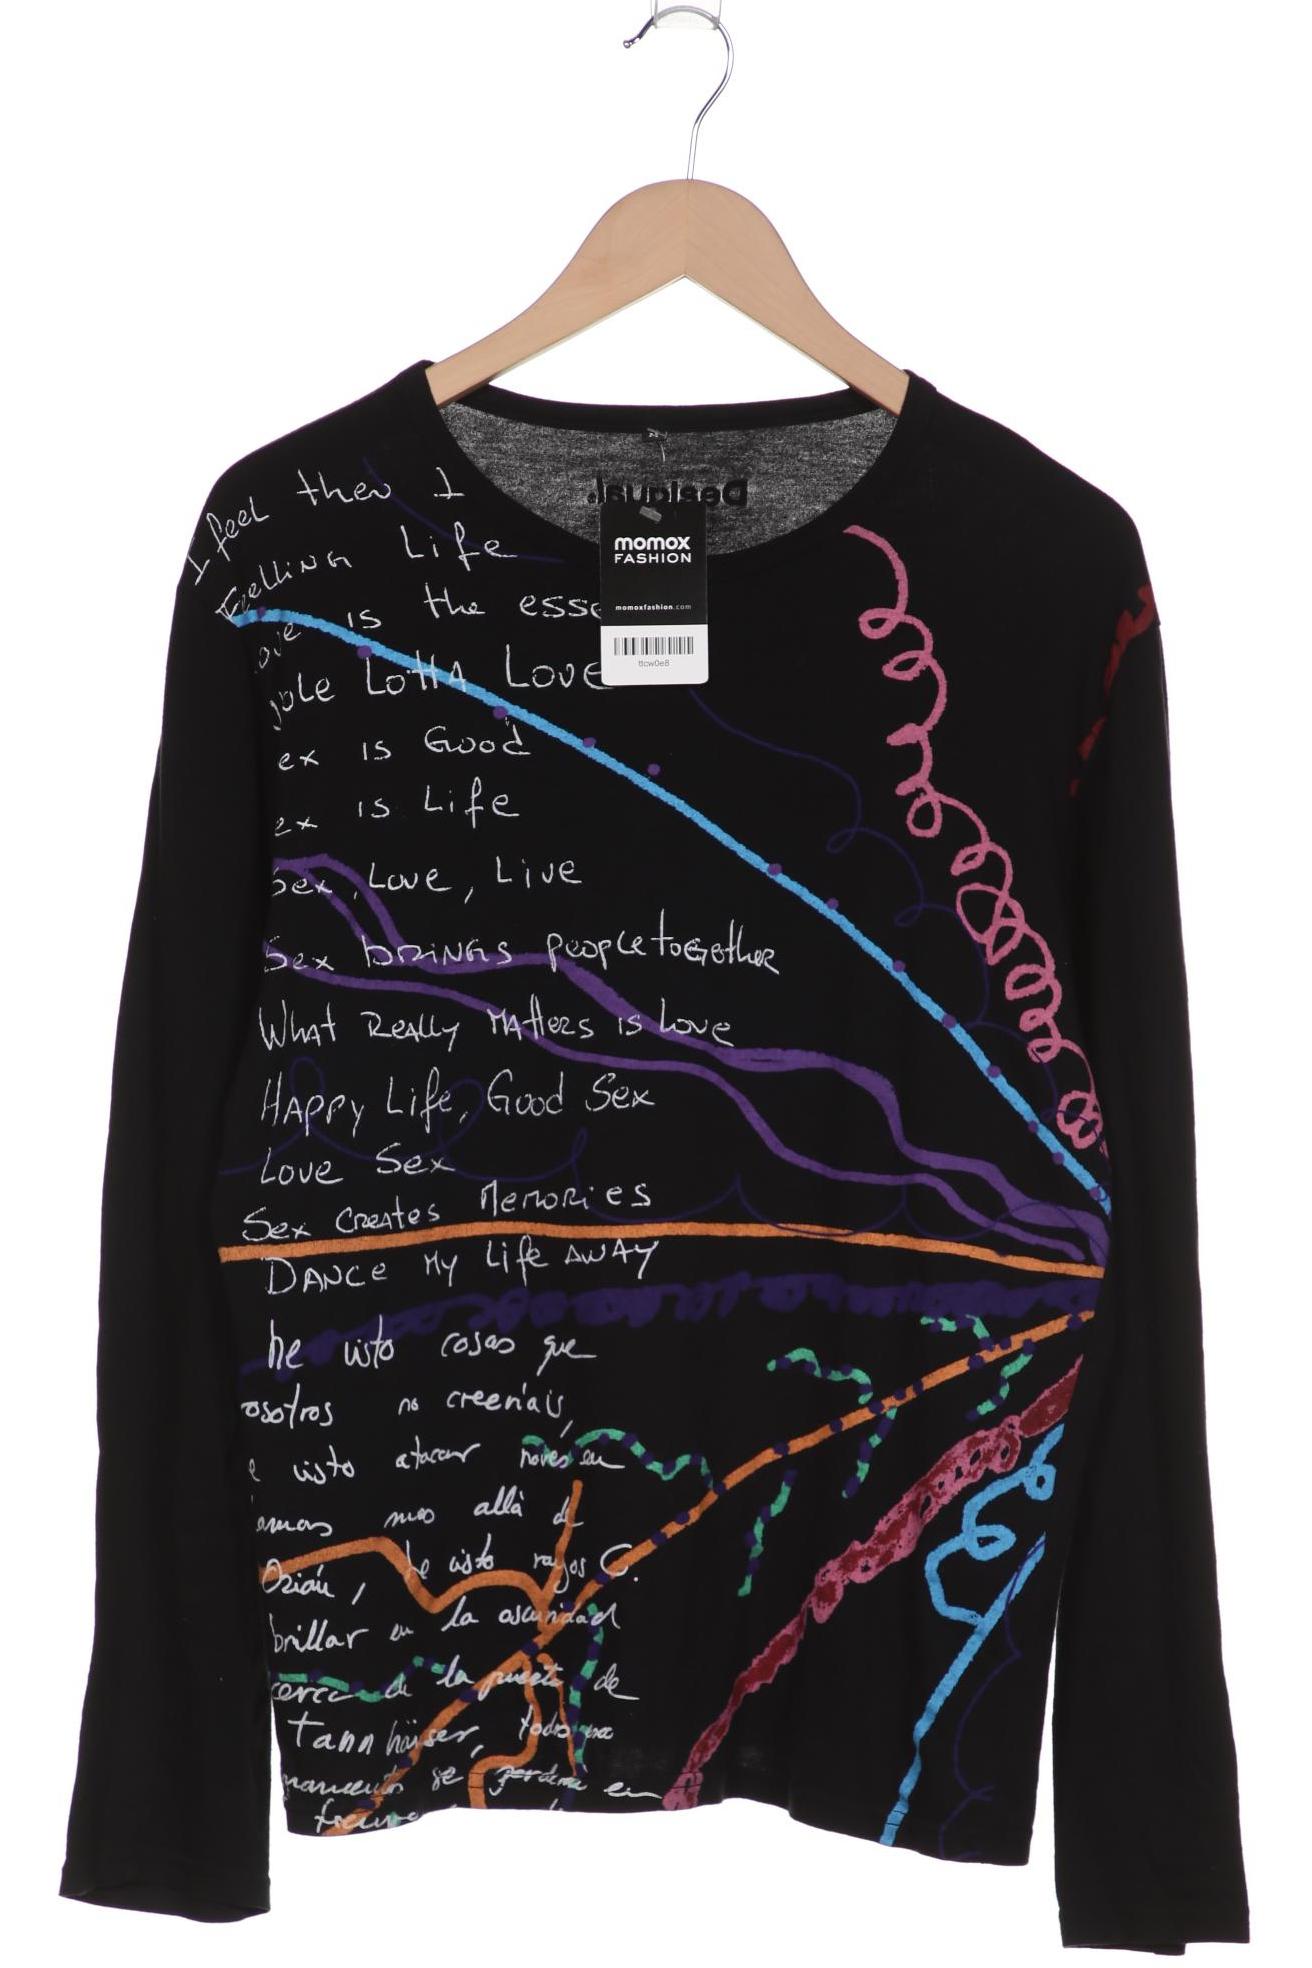 Desigual.
momox
FASHION
momoxfashion.com
ttcw0e8
I feel then I
Feelling Life
ove is the esse
ole Lotta Love
ex is Good
ex is Life
Sex, Love, Live
Sex brings people together
What Really Matters is Love
Happy Life, Good Sex
Love Sex
Sex creates Memories
Dance My Life Away
he visto cosas que
osotros no creeríais,
e visto atacar naves en
más allá de
Orión, he visto rayos C.
brillar en la oscuridad
cerca de la puerta de
Tannhäiser, todos
se en